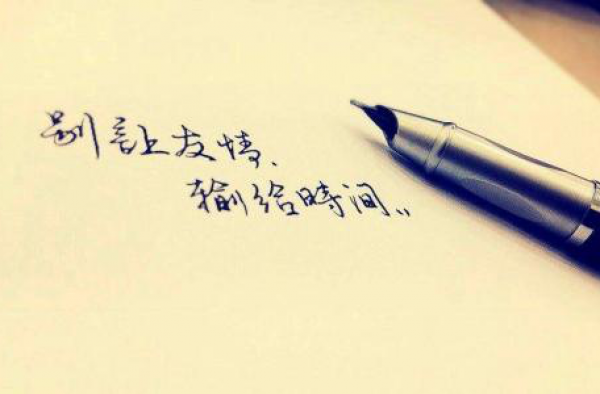 别让友情、
输给時间,,